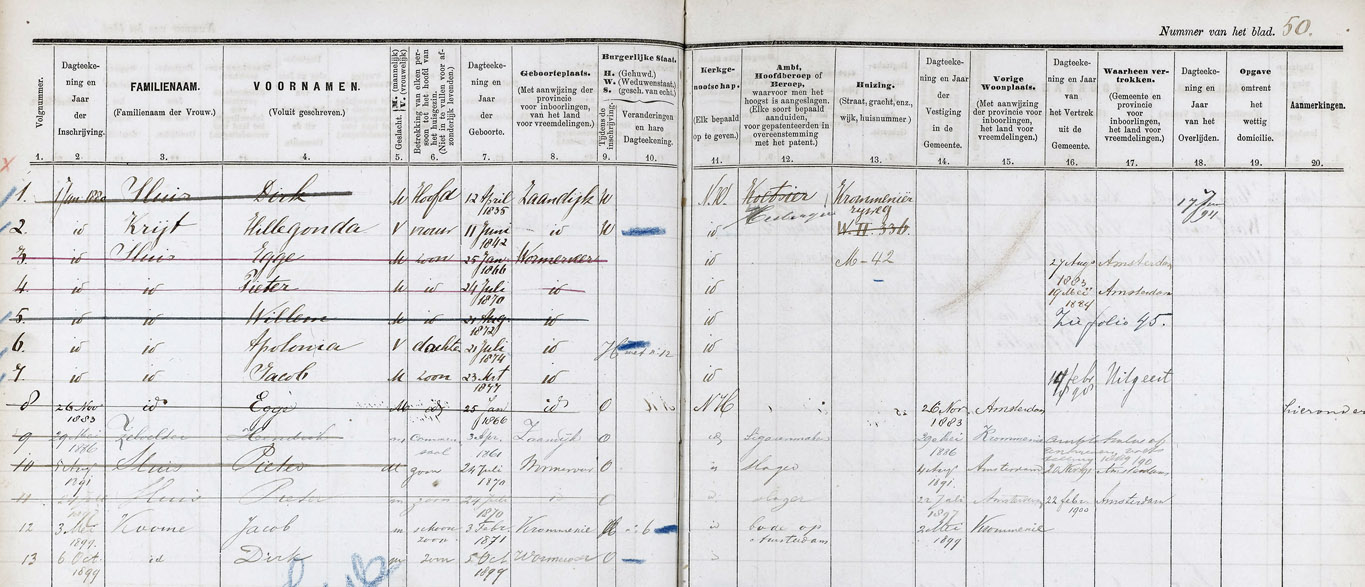 Nummer van het blad. 50.
Volgnummer.
Dagteekening en Jaar der Inschrijving.
FAMILIENAAM.
(Familienaam der Vrouw.)
VOORNAMEN.
(Voluit geschreven.)
Geslacht. M. (mannelijk) V. (vrouwelijk)
Betrekking van elken persoon tot het hoofd van het huisgezin. (Niet in te vullen voor afzonderlijk levenden.)
Dagteekening en Jaar der Geboorte.
Geboorteplaats.
(Met aanwijzing der provincie voor inboorlingen, van het land voor vreemdelingen.)
Burgerlijke Staat.
H. (Gehuwd.)
W. (Weduwenstaat.)
S. (gesch. van echt.)
Tijdens de inschrijving.
Veranderingen en hare Dagteekening.
Kerkgenootschap.
(Elk bepaald op te geven.)
Ambt, Hoofdberoep of Beroep,
waarvoor men het hoogst is aangeslagen. (Elke soort bepaald aanduiden, voor gepatenteerden in overeenstemming met het patent.)
Huizing.
(Straat, gracht, enz., wijk, huisnummer.)
Dagteekening en Jaar der Vestiging in de Gemeente.
Vorige Woonplaats.
(Met aanwijzing der provincie voor inboorlingen, het land voor vreemdelingen.)
Dagteekening en Jaar van het Vertrek uit de Gemeente.
Waarheen vertrokken.
(Gemeente en provincie voor inboorlingen, het land voor vreemdelingen.)
Dagteekening en Jaar van het Overlijden.
Opgave omtrent het wettig domicilie.
Aanmerkingen.
1. 2. 3. 4. 5. 6. 7. 8. 9. 10. 11. 12. 13. 14. 15. 16. 17. 18. 19. 20.
1. Huis Dirk M Hoofd 12 April 1835 Zaandijk H Krommenieër
2. id Krijt Hillegonda V vrouw 11 Juni 1842 id H id W. II. 336.
3. id Huis Egge M zoon 25 Jan 1866 Wormerveer id M-42 27 Aug 1883 Amsterdam
4. id id Pieter M id 24 Juli 1870 id id 19 Mei 1884 Amsterdam
5. id id Willem M id 21 Aug 1872 id id Zie folio 45.
6. id id Apolonia V dochter 21 Juli 1874 id id
7. id id Jacob M zoon 23 1877 id id Uitgeest
8 26 Nov 1883 id Egge M 25 Jan 1866 id O NH 26 Nov. 1883 Amsterdam hieronder
9 1886 1861 Zaandijk O Sigarenmaker 1886 Krommenie
10 1891 Huis Pieter M zoon 24 Juli 1870 Wormerveer O Slager 1891. Amsterdam Amsterdam
11 1897 Huis Pieter m zoon 24 Juli 1870 id O slager 22 Juli 1897 Amsterdam 22 febr 1900 Amsterdam
12 3 1899. Jacob m schoonzoon 3 Febr. 1871 Krommenie H bode op Amsterdam 1899 Krommenie
13 6 Oct 1899 id Dirk zoon Oct 1899 Wormerveer O